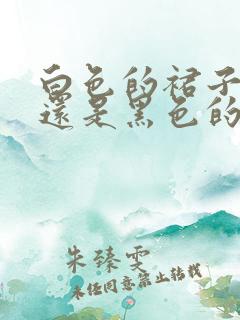 白色的裙子
還是黑色的
朱臻雯
未经同意禁止转载